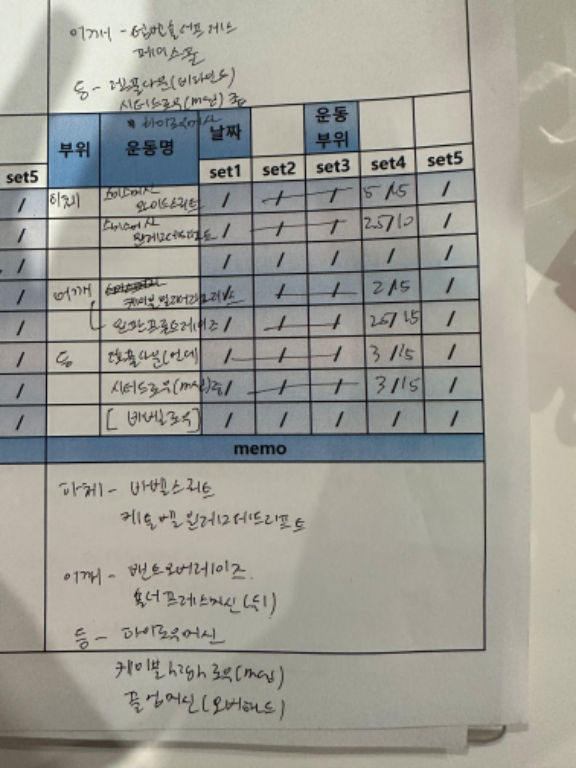 어깨 - 덤벨숄더프레스
페이스풀
등 - 랫풀다운(비하인드)
시티드로우(mag) 중
하이로우머신
부위 운동명 날짜 운동 부위
set5 set1 set2 set3 set4 set5
/ 하체 스미스머신 와이드스쿼트 / / / 5/15 /
/ 스미스머신 원레그데드리프트 / / / 25/10 /
/ / / / / /
/ 어깨 케이블 / / / 2/15 /
/ 레이즈 / / / 25/15 /
/ 등 랫풀다운(언더) / / / 3/15 /
/ 시티드로우(mag)중 / / / 3/15 /
/ [바벨로우] / / / / /
memo
하체 - 바벨스쿼트
케틀벨 원레그데드리프트
어깨 - 벤트오버레이즈
숄더프레스머신(뒤)
등 - 하이로우머신
케이블 high 로우(mag)
풀업머신(오버핸드)